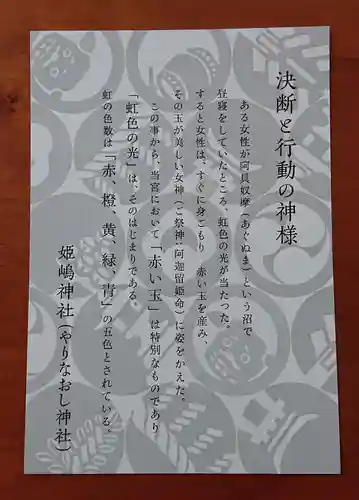 決断と行動の神様
ある女性が阿具奴摩(あぐぬま)という沼で
昼寝をしていたところ、虹色の光が当たった。
すると女性は、すぐに身ごもり 赤い玉を産み、
その玉が美しい女神(ご祭神:阿迦留姫命)に姿をかえた。
この事から、当宮において「赤い玉」は特別なものであり
「虹色の光」は、そのはじまりである
虹の色数は「赤、橙、黄、緑、青」の五色とされている。
姫嶋神社(やりなおし神社)